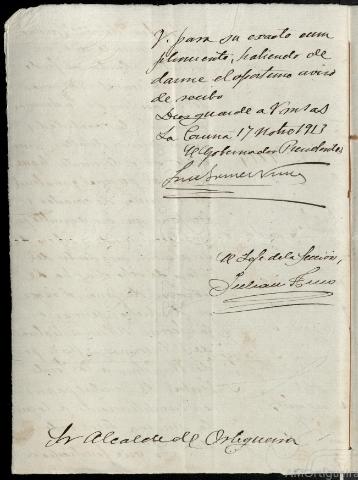 V. para su exacto cum
plimiento, habiendo de
darme el oportuno aviso
de recibo
Dios guarde a V muchos
La Coruña 17 Nbre 1913
El Gobernador Presidente
El Jefe de la Sección,
Julián
Sr Alcalde de Ortigueira
AMOrtigueira